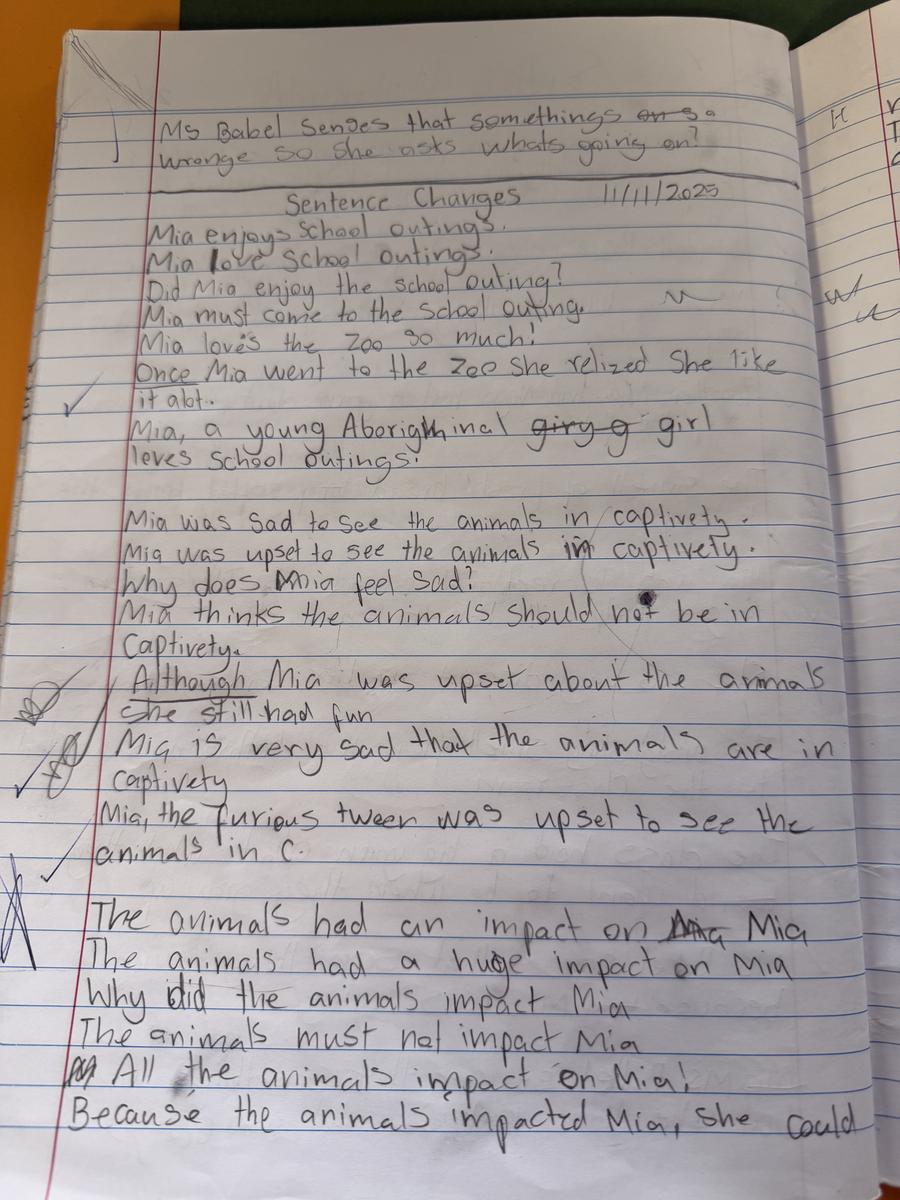 Ms Babel Senses that somethings
wronge so she asks whats going on?
Sentence Changes 11/11/2025
Mia enjoys School outings.
Mia love School outings.
Did Mia enjoy the school outing?
Mia must come to the School outing.
Mia loves the Zoo so much!
Once Mia went to the Zoo She relized She like
it alot.
Mia, a young Aboriginal girl
loves School outings.
Mia was sad to see the animals in captivety.
Mia was upset to see the animals in captivety.
Why does Mia feel sad?
Mia thinks the animals should not be in
Captivety.
Although Mia was upset about the animals
She still had fun
Mia is very sad that the animals are in
captivety
Mia, the furious tween was upset to see the
animals in C.
The animals had an impact on Mia
The animals had a huge impact on Mia
Why did the animals impact Mia
The animals must not impact Mia
All the animals impact on Mia!
Because the animals impacted Mia, she could